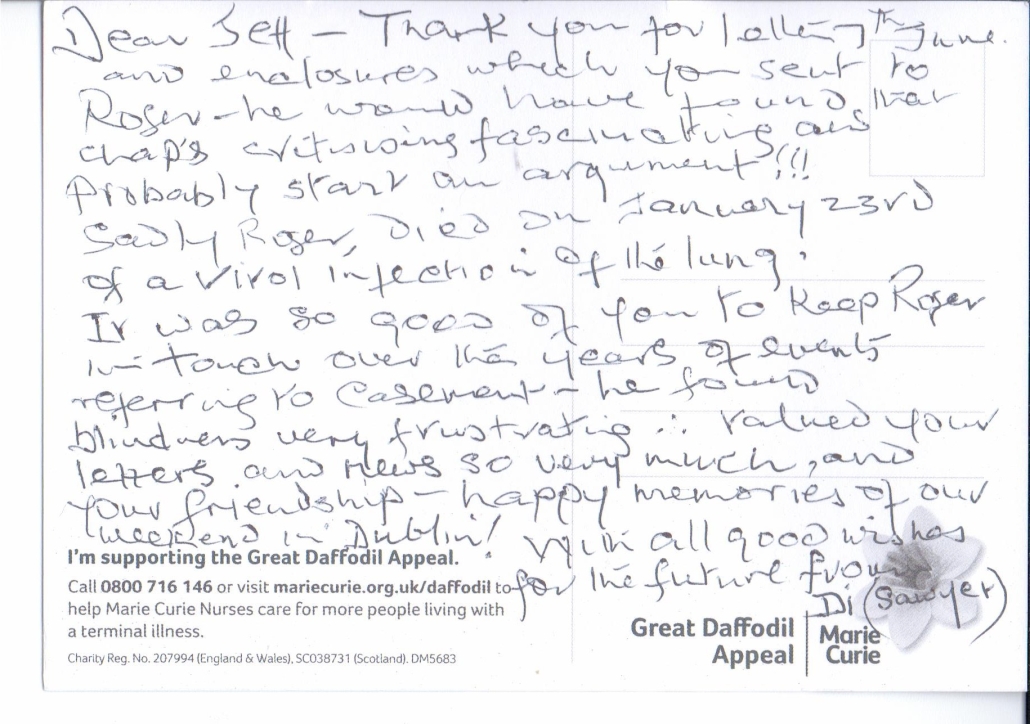 Dear Jeff – Thank you for letter 7th June.
and enclosures which you sent to
Roger – he would have found that
chap's critisising fascinating and
Probably start an argument!!!
Sadly Roger, Died on January 23rd
of a Virol infection of the lung.
It was so good of you to keep Roger
in touch over the years of events
referring to Casement – he found
blindness very frustrating ∴ valued your
letters and news so very much, and
your friendship – happy memories of our
weekend in Dublin! With all good wishes
for the future from
Di (Sawyer)
I'm supporting the Great Daffodil Appeal.
Call 0800 716 146 or visit mariecurie.org.uk/daffodil to
help Marie Curie Nurses care for more people living with
a terminal illness.
Charity Reg. No. 207994 (England & Wales), SC038731 (Scotland). DM5683
Great Daffodil
Appeal
Marie
Curie